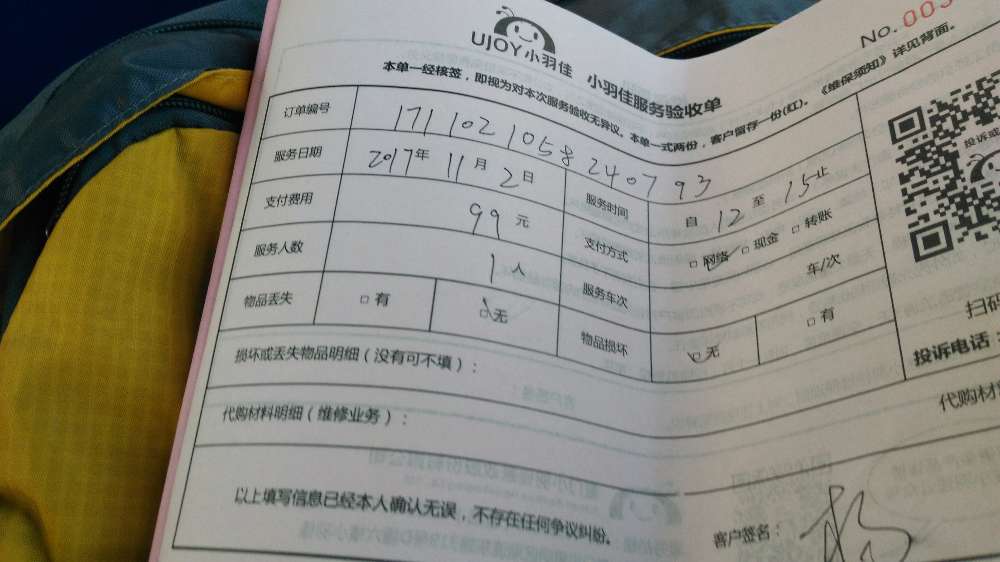 No.003
UJOY小羽佳 小羽佳服务验收单
本单一经核签，即视为对本次服务验收无异议。本单一式两份，客户留存一份(红)。《维保须知》详见背面。
订单编号 171102105824079 3
服务日期 2017年11月2日 服务时间 自12至15止
支付费用 99元 支付方式 □网络 □现金 □转账
服务人数 1人 服务车次 车/次
物品丢失 □有 □无 物品损坏 □无 □有
损坏或丢失物品明细（没有可不填）：
代购材料明细（维修业务）：
以上填写信息已经本人确认无误，不存在任何争议纠纷。
客户签名：
投诉或
扫码
投诉电话：
代购材